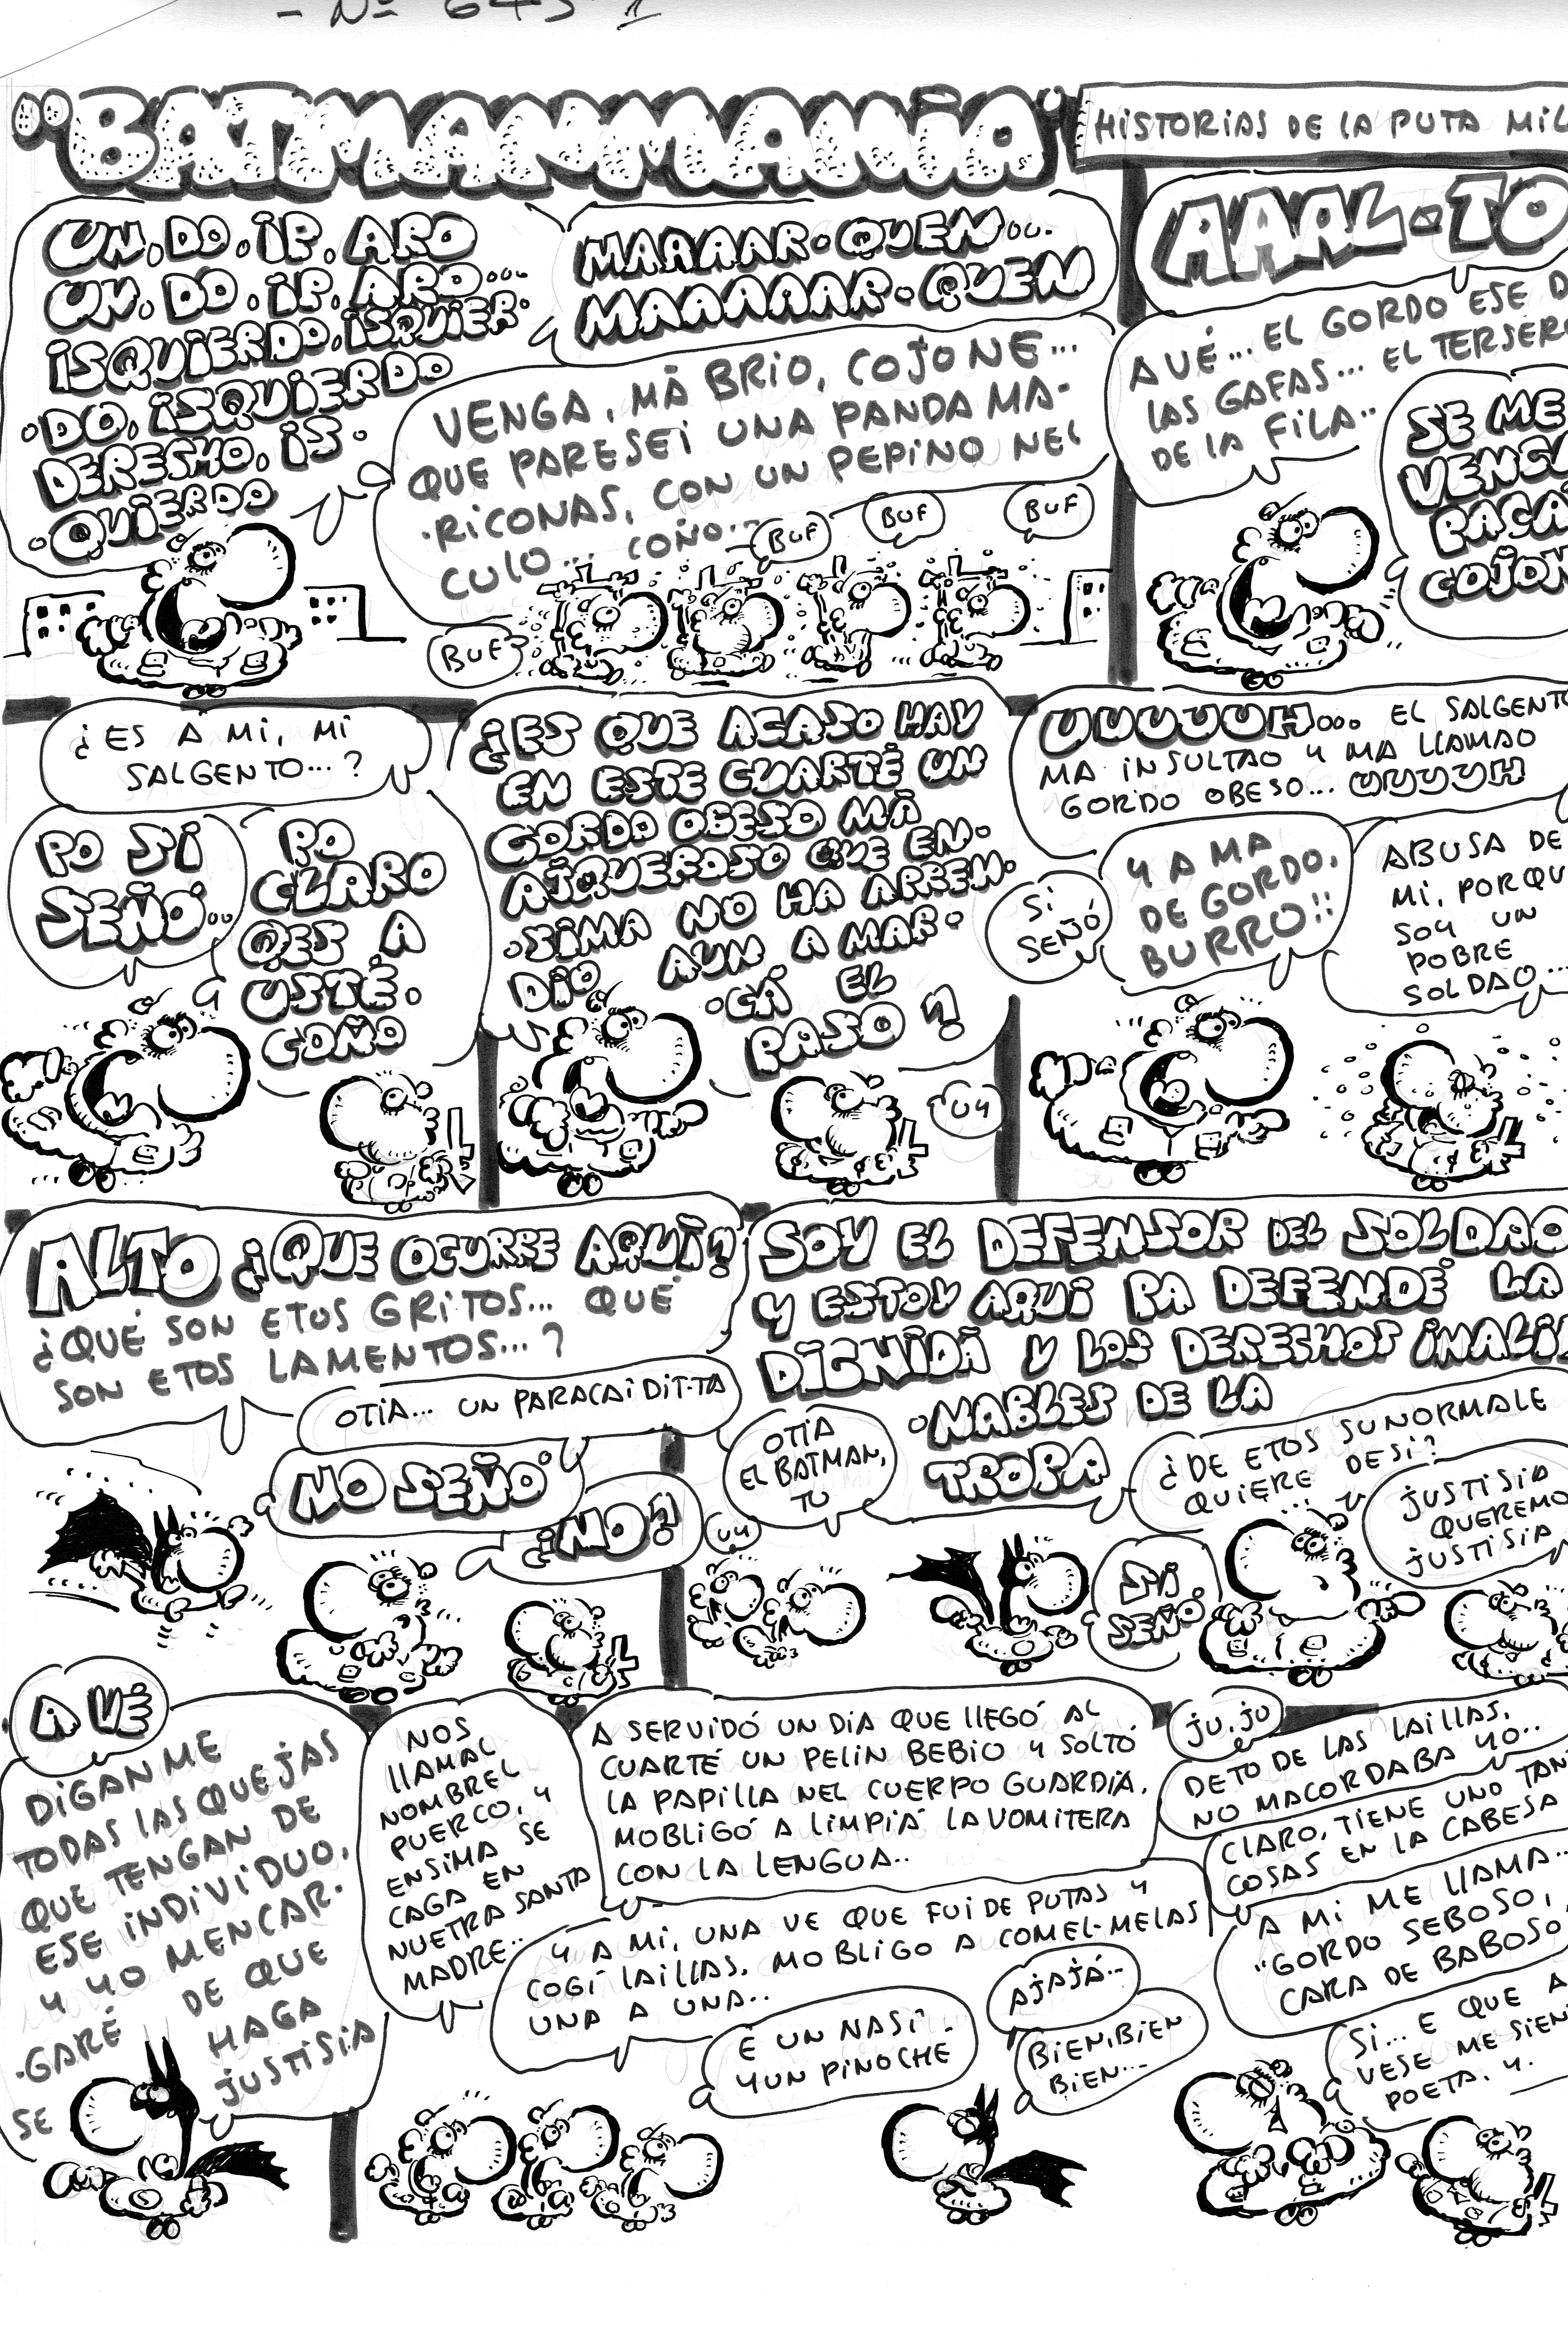 - Nº 645 1
"BATMANMANIA"
HISTORIAS DE LA PUTA MIL
UN. DO. IP. ARO
UN. DO. IP. ARO...
ISQUIERDO. ISQUIER-
-DO, ISQUIERDO
DERESHO. IS-
-QUIERDO
MAAAAR-QUEN...
MAAAAAAR-QUEN
VENGA, MÁ BRIO, COJONE...
QUE PARESEI UNA PANDA MA-
-RICONAS, CON UN PEPINO NEL
CULO... COÑO...
BUF
BUF
BUF
BUF
AAAL-TO
A VÉ... EL GORDO ESE D
LAS GAFAS... EL TERSERO
DE LA FILA..
SE ME
VENGA
PACA
COJON
¿ES A MI, MI
SALGENTO...?
PO SI
SEÑÓ..
PO
CLARO
QES A
USTÉ.
COÑO
¿ES QUE ACASO HAY
EN ESTE CUARTÉ UN
GORDO OBESO MÁ
ASQUEROSO QUE EN-
-SIMA NO HA APREN-
DIO AUN A MAR-
-CÁ EL
PASO?
UY
UUUUUH... EL SALGENTO
MA INSULTAO Y MA LLAMAO
GORDO OBESO... UUUUH
SI
SEÑÓ
Y A MA
DE GORDO,
BURRO!!
ABUSA DE
MI, PORQU
SOY UN
POBRE
SOLDAO...
ALTO ¿QUE OCURRE AQUI?
¿QUÉ SON ETOS GRITOS... QUÉ
SON ETOS LAMENTOS...?
OTIA... UN PARACAIDIT-TA
NO SEÑÓ
¿NO?
UY
SOY EL DEFENSOR DEL SOLDAO
Y ESTOY AQUI PA DEFENDÉ LA
DIGNIDÁ Y LOS DERECHOS INALIE
-NABLES DE LA
TROPA
OTIA
EL BATMAN,
TU
¿DE ETOS SUNORMALE
QUIERE DESI?
SI,
SEÑÓ
JUSTISIA
QUEREMO
JUSTISIA
A VÉ
DIGANME
TODAS LAS QUEJAS
QUE TENGAN DE
ESE INDIVIDUO,
Y YO MENCAR-
-GARÉ DE QUE
SE HAGA
JUSTISIA
NOS
LLAMAL
NOMBREL
PUERCO, Y
ENSIMA SE
CAGA EN
NUETRA SANTA
MADRE..
A SERVIDÓ UN DIA QUE LLEGÓ AL
CUARTÉ UN PELIN BEBIO Y SOLTÓ
LA PAPILLA NEL CUERPO GUARDIA.
MOBLIGÓ A LIMPIÁ LA VOMITERA
CON LA LENGUA..
Y A MI, UNA VE QUE FUI DE PUTAS Y
COGÍ LAILLAS. MOBLIGO A COMEL-MELAS
UNA A UNA..
E UN NASI
Y UN PINOCHÉ
AJAJÁ..
BIEN, BIEN
BIEN...
JU, JU
DETO DE LAS LAILLAS,
NO MACORDABA YO..
CLARO, TIENE UNO TAN
COSAS EN LA CABESA
A MI ME LLAMA..
"GORDO SEBOSO,
CARA DE BABOSO
SI... E QUE A
VESE ME SIEN
POETA. Y.